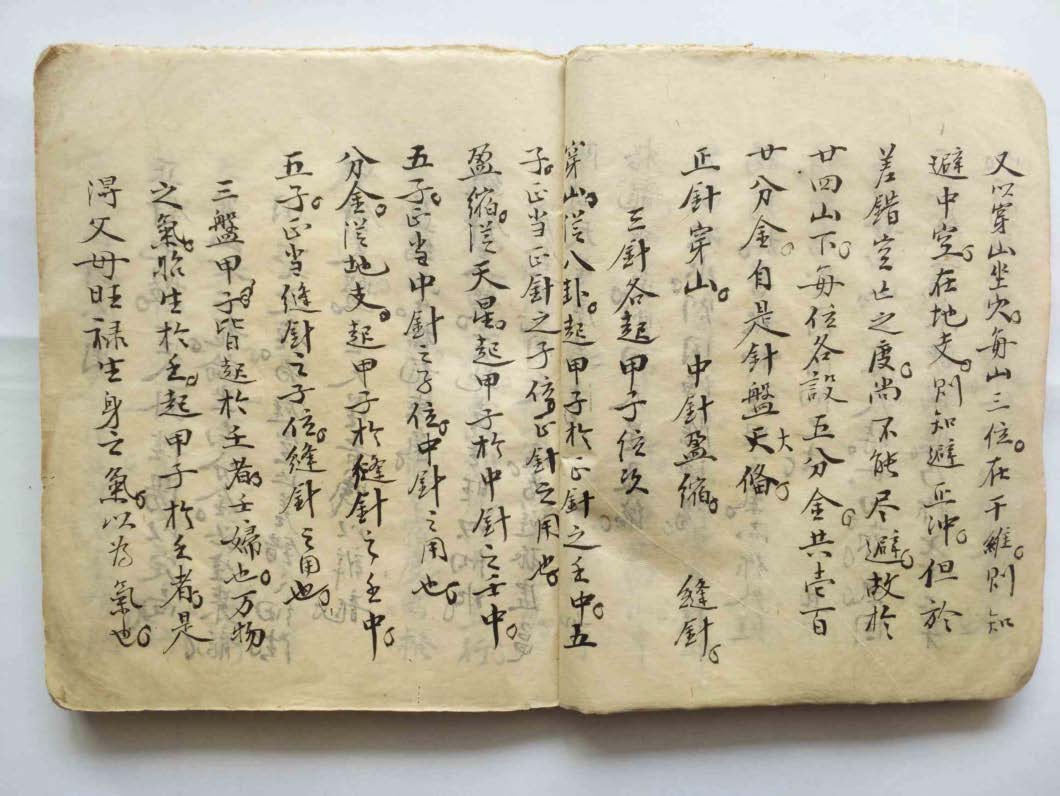 又以穿山坐穴。每山三位。在干維。則知
避中空。在地支。則知避正沖。但於
差錯空亡之度。尚不能尽避。故於
廿四山下。每位各設五分金。共壹百
廿分金。自是針盤天大偹。
正針穿山。 中針盈縮。 縫針。
三針各起甲子位攷
穿山。從八卦。起甲子於正針之壬中。五
子。正当正針之子位。正針之用也。
盈縮。從天星。起甲子於中針之壬中。
五子。正当中針之子位。中針之用也。
分金。從地支。起甲子於縫針之壬中。
五子。正当縫針之子位。縫針之用也。
三盤甲子皆起於壬者。壬婦也。万物
之氣。胎生於壬。起甲子於壬者。是
淂父母旺禄生身之氣。以為氣也。